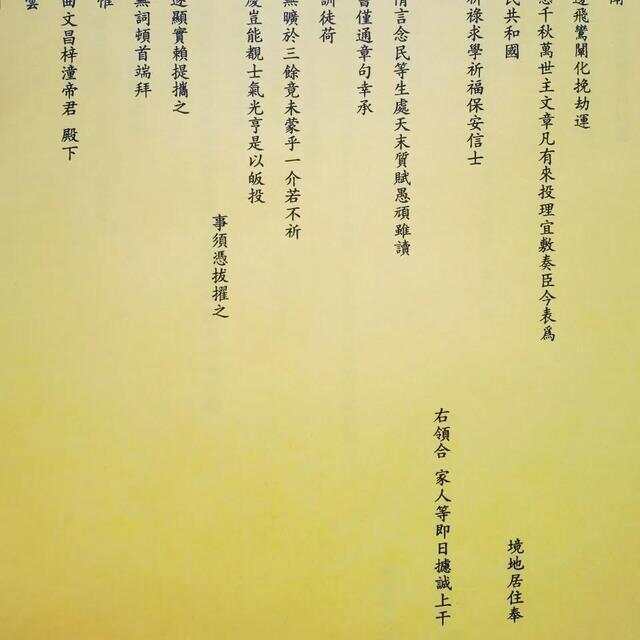 飛鸞闡化挽劫運
千秋萬世主文章凡有來投理宜敷奏臣今表為
民共和國 境地居住奉
祈祿求學祈福保安信士
右領合 家人等即日攄誠上干
情言念民等生處天末質賦愚頑雖讀
嘗僅通章句幸承
訓徒荷
無曠於三餘竟未蒙乎一介若不祈
豈能覩士氣光亨是以皈投
事須憑拔擢之
遂顯實賴提攜之
無詞頓首端拜
惟
文昌梓潼帝君 殿下